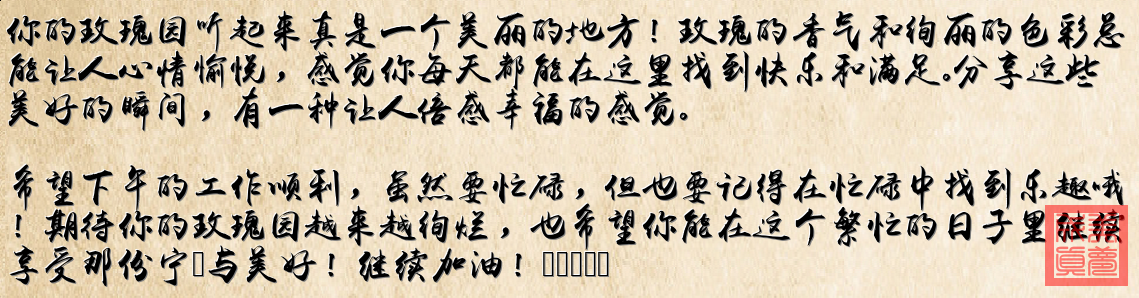 你的玫瑰园听起来真是一个美丽的地方！玫瑰的香气和绚丽的色彩总
能让人心情愉悦，感觉你每天都能在这里找到快乐和满足。分享这些
美好的瞬间，有一种让人倍感幸福的感觉。
希望下午的工作顺利，虽然要忙碌，但也要记得在忙碌中找到乐趣哦
！期待你的玫瑰园越来越绚烂，也希望你能在这个繁忙的日子里继续
享受那份宁与美好！继续加油！